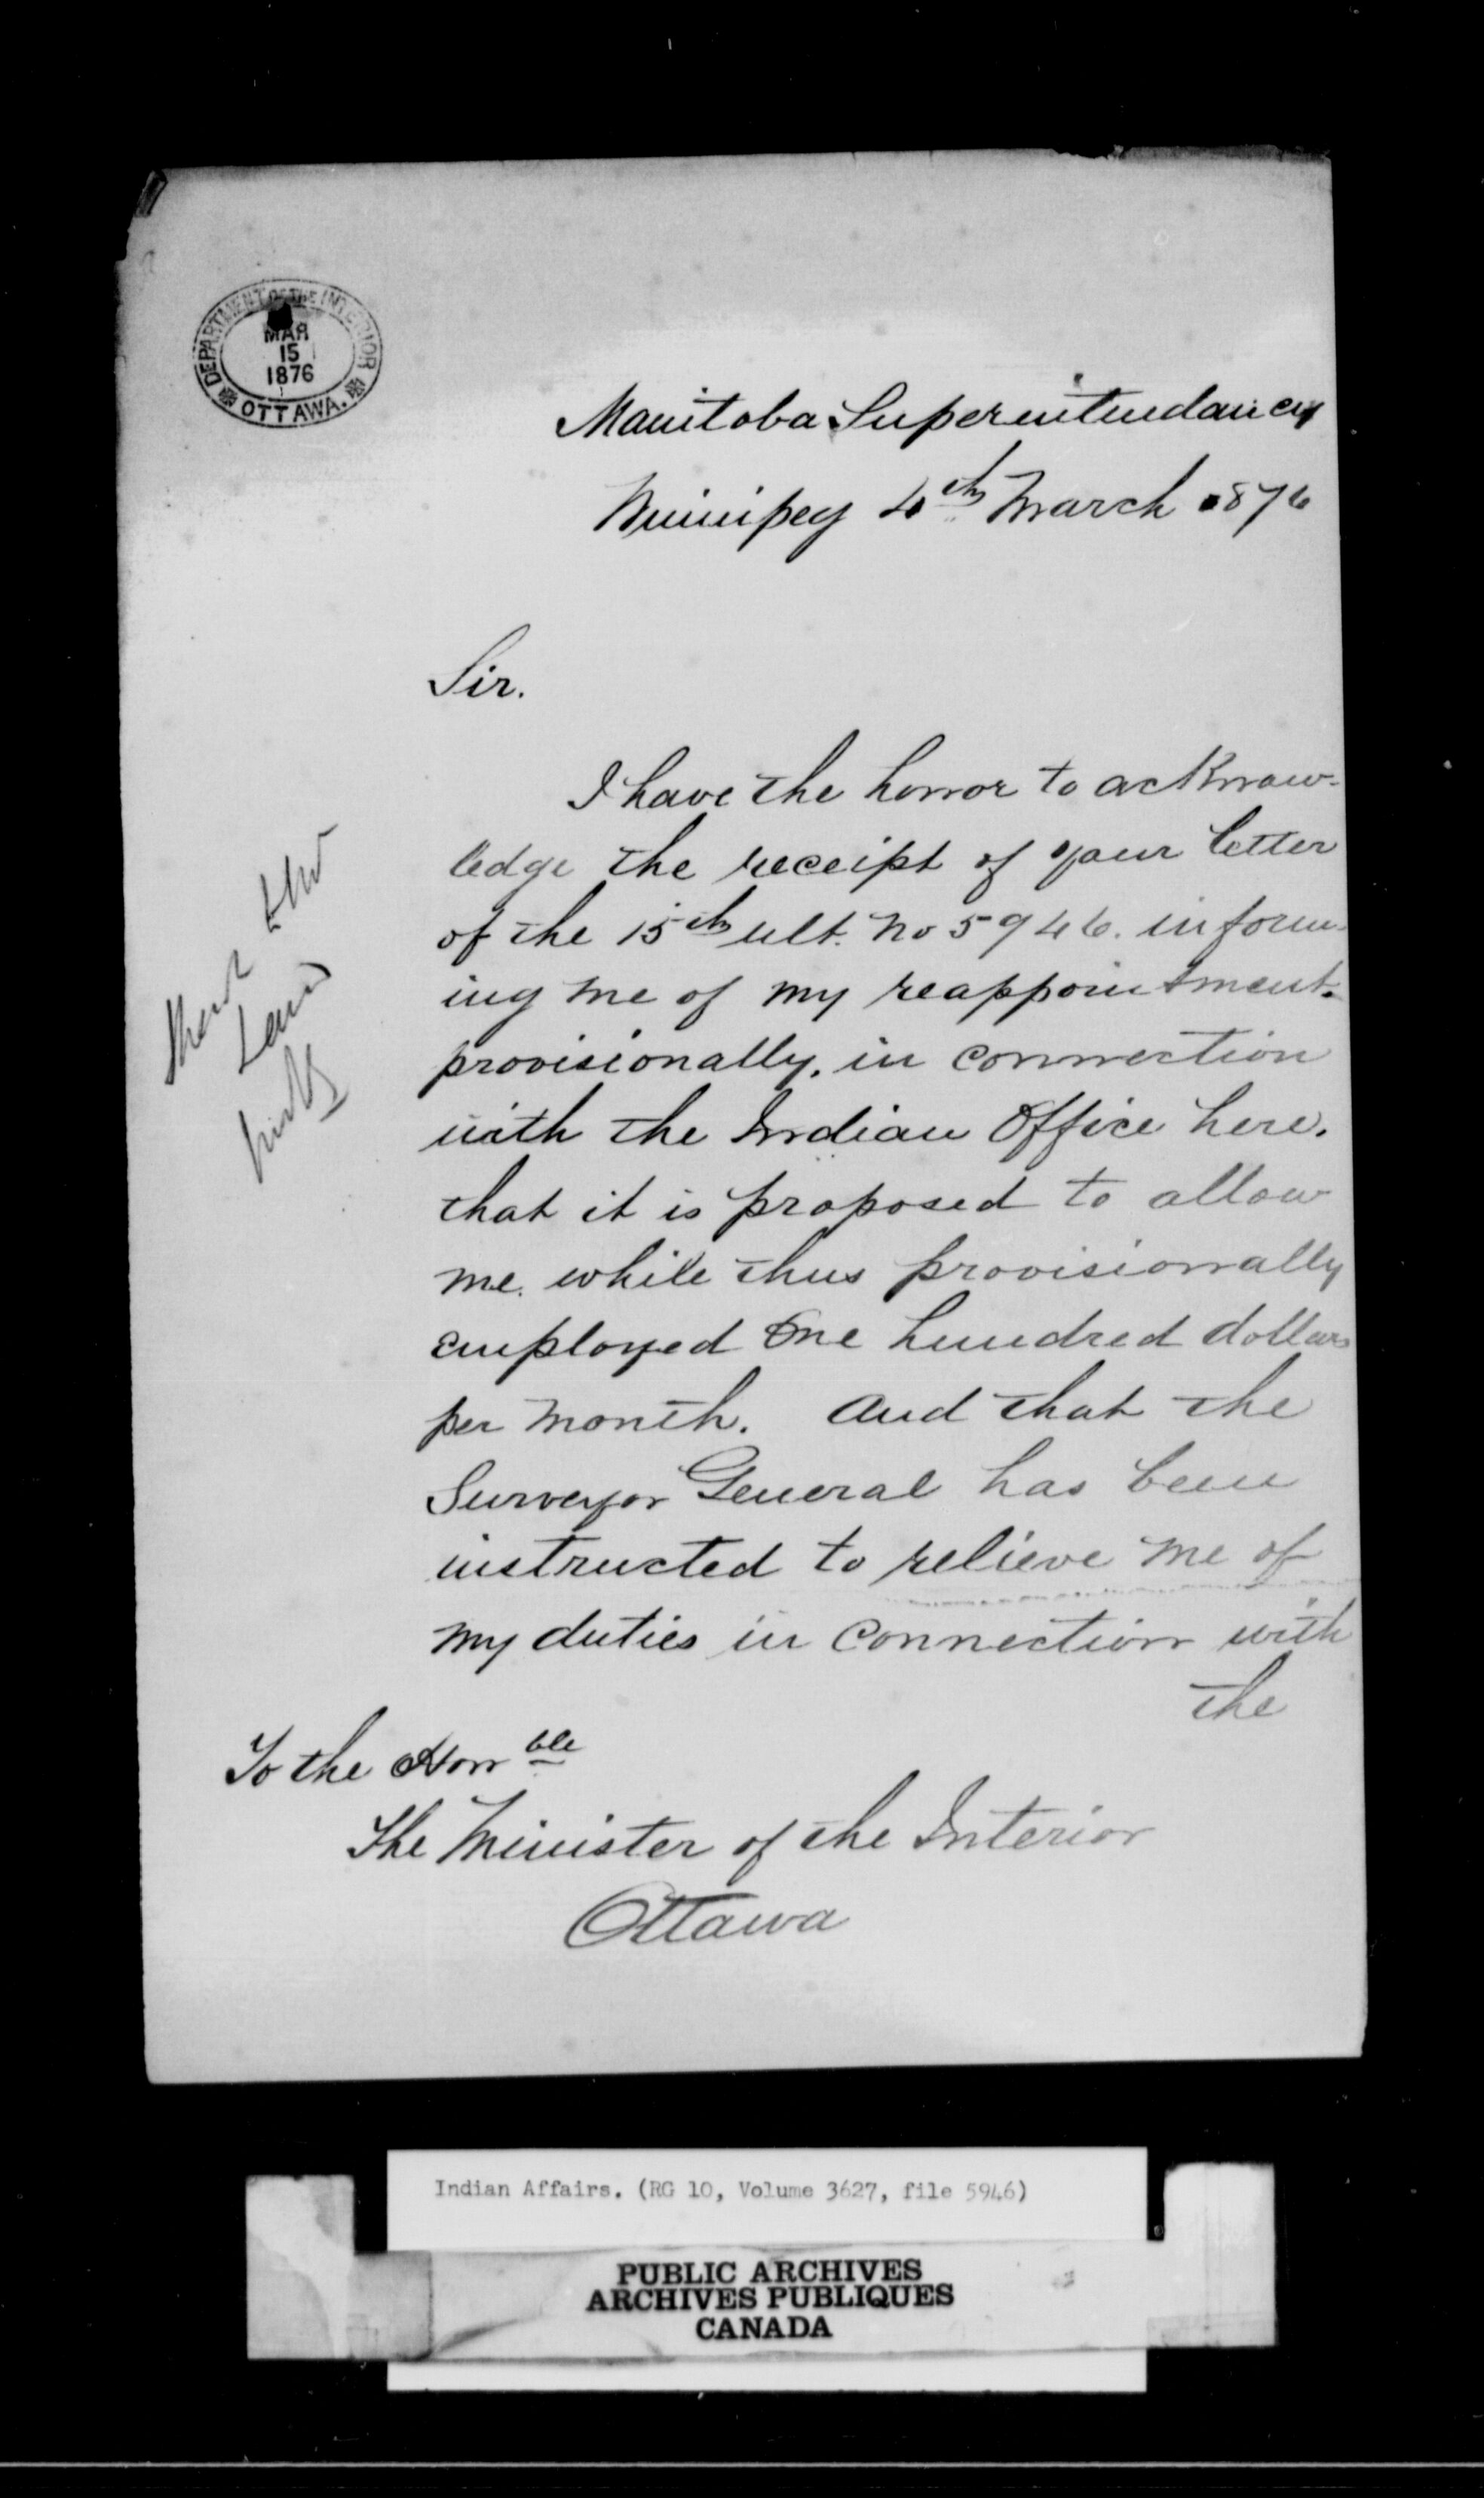 DEPARTMENT OF THE INTERIOR
MAR
15
1876
OTTAWA.
Manitoba Superintendancy
Winnipeg 4th March 1876
Sir.
I have the honor to acknow-
ledge the receipt of your letter
of the 15th ult. No 5946. inform-
ing me of my reappointment.
provisionally, in connection
with the Indian Office here.
that it is proposed to allow
me. while thus provisionally
employed One hundred dollars
per month. And that the
Surveyor General has been
instructed to relieve me of
my duties in connection with
the
To the Honble
The Minister of the Interior
Ottawa
Indian Affairs. (RG 10, Volume 3627, file 5946)
PUBLIC ARCHIVES
ARCHIVES PUBLIQUES
CANADA